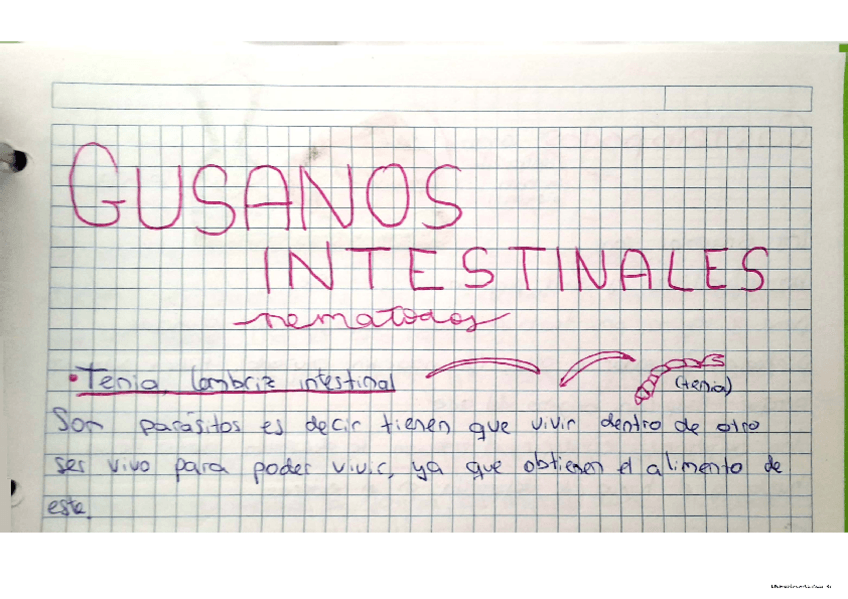 GUSANOS
INTESTINALES
nematodos
• Tenia, lombriz intestinal
(tenia)
Son parásitos es decir tienen que vivir dentro de otro
ser vivo para poder vivir, ya que obtienen el alimento de
este.